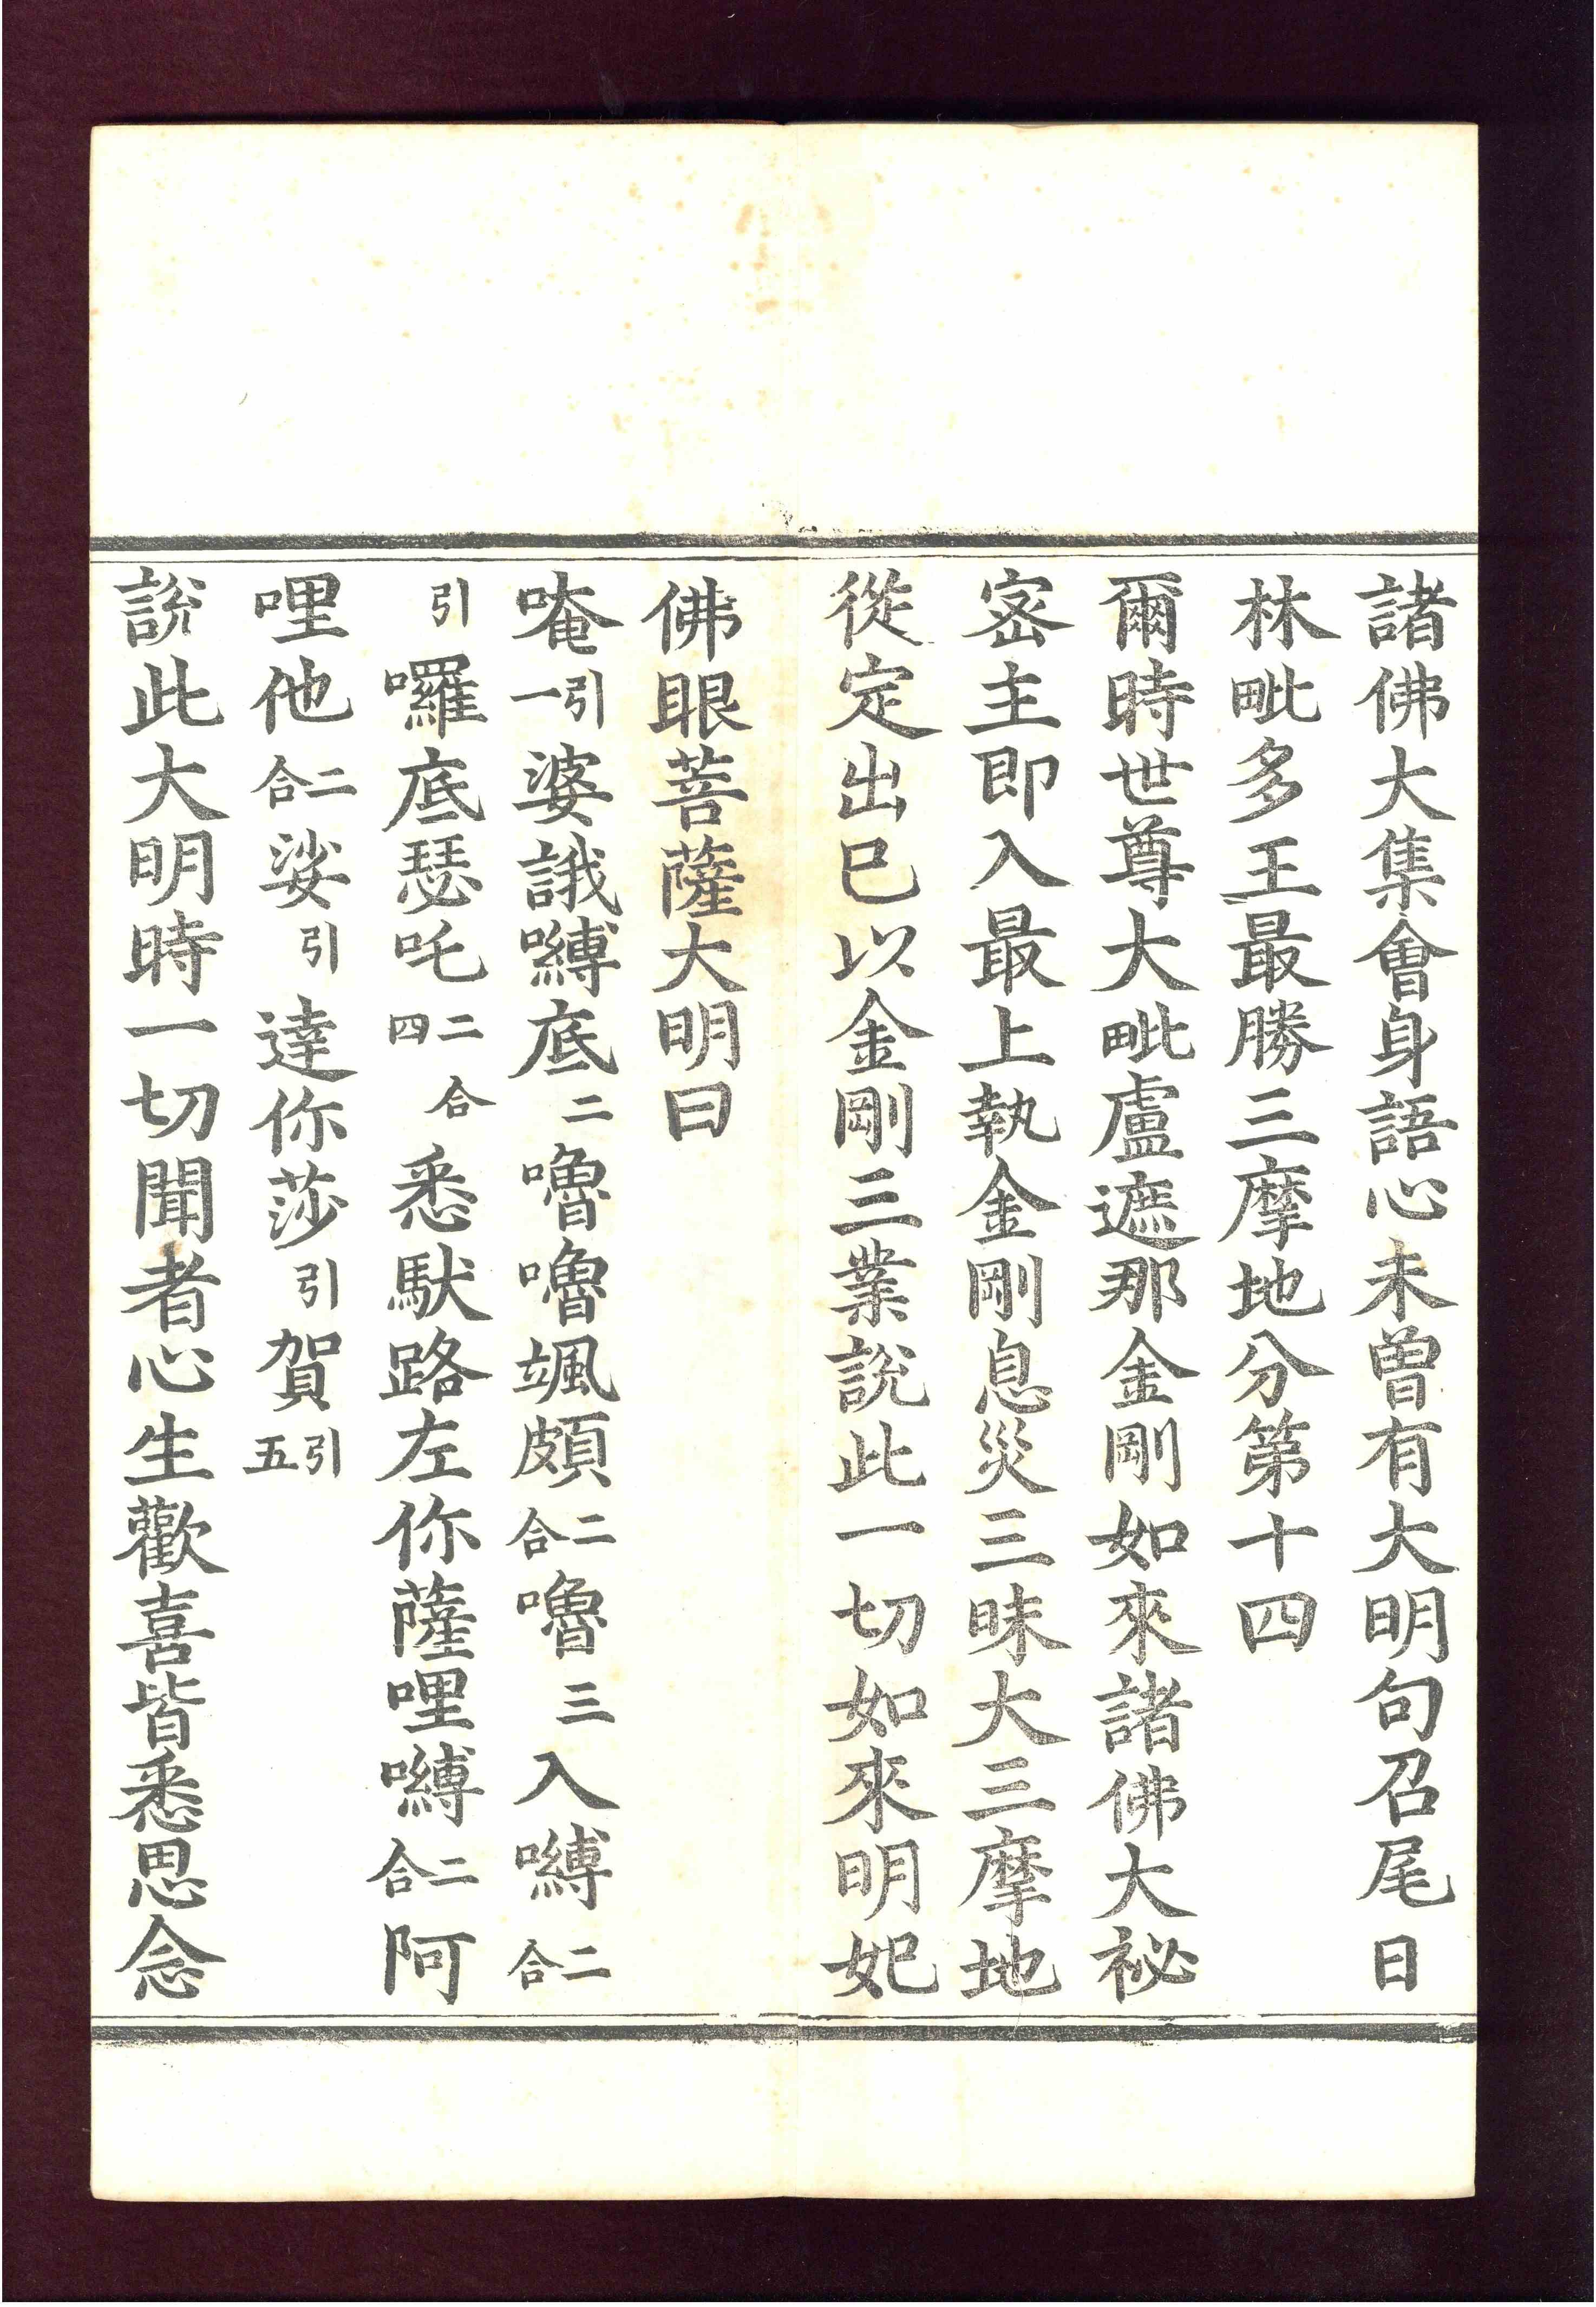 諸佛大集會身語心未曾有大明句召尾日
林毗多王最勝三摩地分第十四
爾時世尊大毗盧遮那金剛如來諸佛大祕
密主即入最上執金剛息災三昧大三摩地
從定出已以金剛三業說此一切如來明妃
佛眼菩薩大明曰
唵引一婆誐嚩底二嚕嚕颯頗二合嚕三入嚩二合
引囉底瑟吒二合四悉馱路左你薩哩嚩二合阿
哩他二合娑引達你莎引賀引五
說此大明時一切聞者心生歡喜皆悉思念